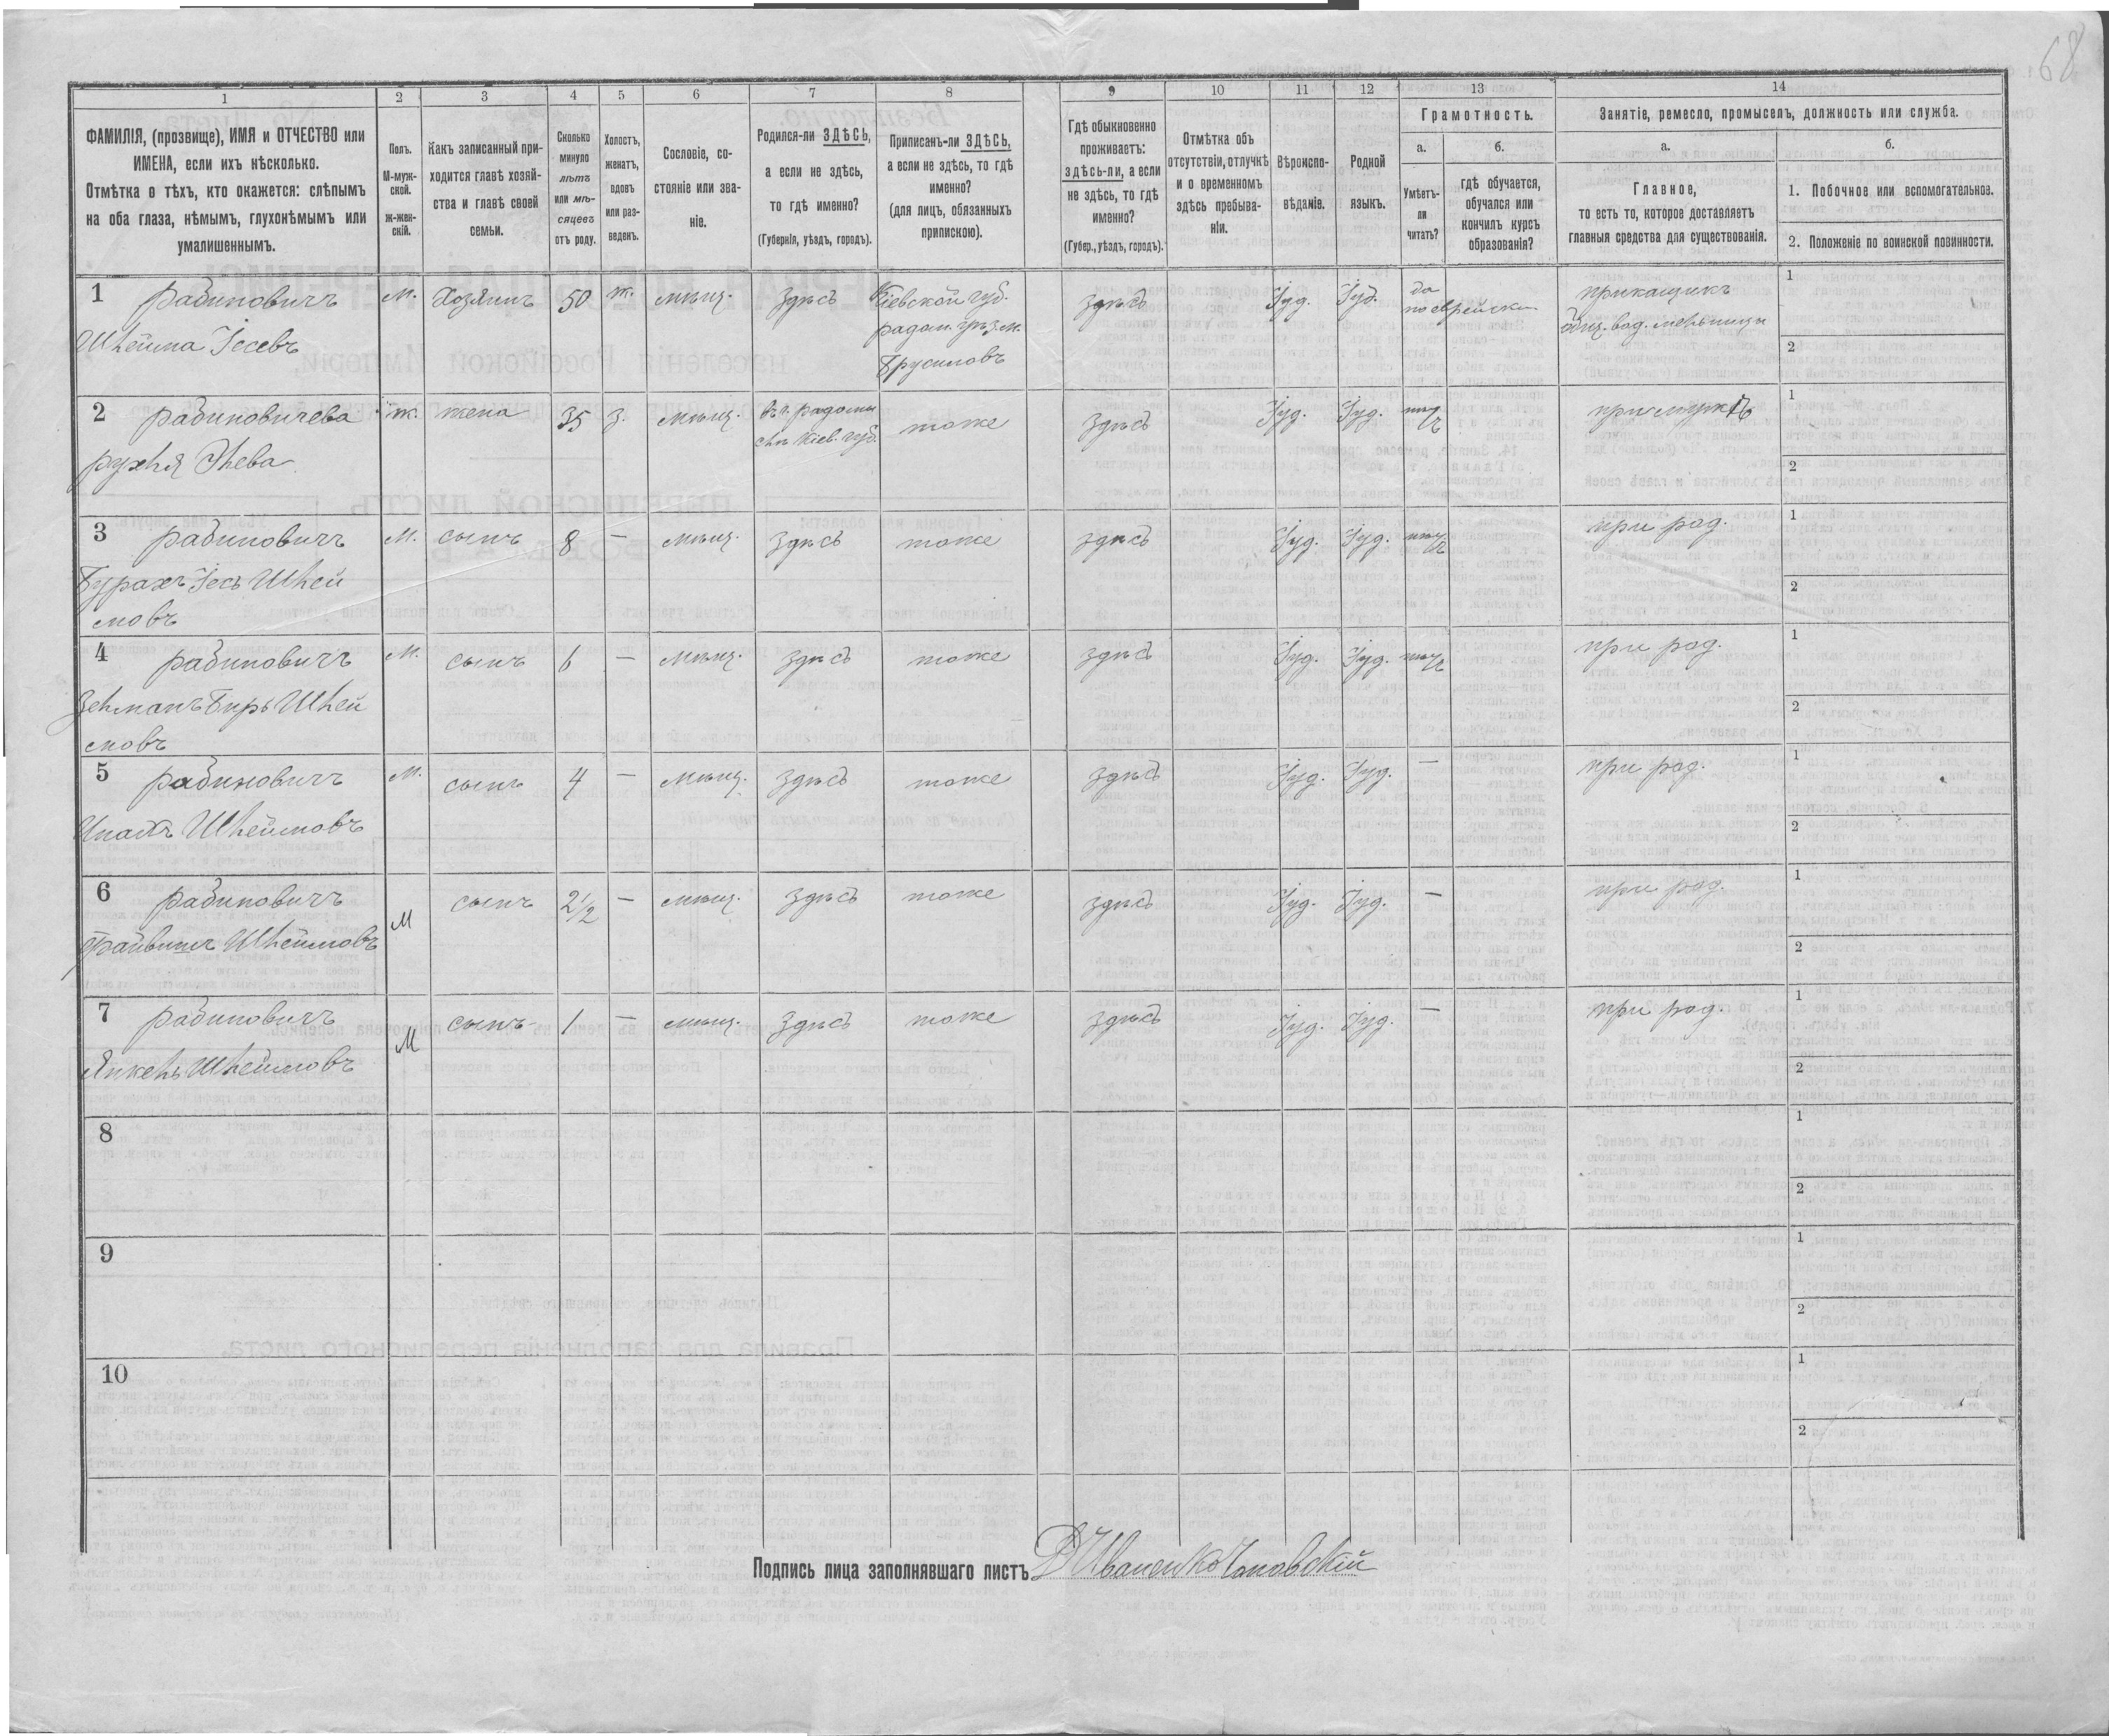 68
1 2 3 4 5 6 7 8 9 10 11 12 13 14
ФАМИЛІЯ, (прозвище), ИМЯ и ОТЧЕСТВО или
ИМЕНА, если ихъ нѣсколько.
Отмѣтка о тѣхъ, кто окажется: слѣпымъ
на оба глаза, нѣмымъ, глухонѣмымъ или
умалишеннымъ.
Полъ.
М-муж-
ской.
ж-жен-
скій.
Какъ записанный при-
ходится главѣ хозяй-
ства и главѣ своей
семьи.
Сколько
минуло
лѣтъ
или мѣ-
сяцевъ
отъ роду.
Холостъ,
женатъ,
вдовъ
или раз-
веденъ.
Сословіе, со-
стояніе или зва-
ніе.
Родился-ли ЗДѢСЬ,
а если не здѣсь,
то гдѣ именно?
(Губернія, уѣздъ, городъ).
Приписанъ-ли ЗДѢСЬ,
а если не здѣсь, то гдѣ
именно?
(для лицъ, обязанныхъ
припискою).
Гдѣ обыкновенно
проживаетъ:
здѣсь-ли, а если
не здѣсь, то гдѣ
именно?
(Губер., уѣздъ, городъ).
Отмѣтка объ
отсутствіи, отлучкѣ
и о временномъ
здѣсь пребыва-
ніи.
Вѣроиспо-
вѣданіе.
Родной
языкъ.
Грамотность.
а.
Умѣетъ-
ли
читать?
б.
гдѣ обучается,
обучался или
кончилъ курсъ
образованія?
Занятіе, ремесло, промыселъ, должность или служба.
а.
Главное,
то есть то, которое доставляетъ
главныя средства для существованія.
б.
1. Побочное или вспомогательное.
2. Положеніе по воинской повинности.
1 Рабиновичъ м. Хозяинъ 50 ж. мѣщ. здѣсь Кіевской губ. здѣсь Іуд. Іуд. да прикащикъ 1
Шлейма Іосевъ радом. у. м. по еврейски вод. мельницы 2
Брусиловъ
2 Рабиновичева ж. жена 35 з. мѣщ. въ г. радомы тоже здѣсь Іуд. Іуд. при мужѣ 1
Рухля слѣ Кіев. губ. 2
3 Рабиновичъ м. сынъ 8 — мѣщ. здѣсь тоже здѣсь Іуд. Іуд. при род. 1
Бурахъ Іось Шлей 2
мовъ
4 Рабиновичъ м. сынъ 6 — мѣщ. здѣсь тоже здѣсь Іуд. Іуд. при род. 1
Зельманъ Биръ Шлей 2
мовъ
5 Рабиновичъ м. сынъ 4 — мѣщ. здѣсь тоже здѣсь Іуд. Іуд. — при род. 1
Шлеймовъ 2
6 Рабиновичъ м сынъ 2 1/2 — мѣщ. здѣсь тоже здѣсь Іуд. Іуд. — при род. 1
Файвишъ Шлеймовъ 2
7 Рабиновичъ м сынъ 1 — мѣщ. здѣсь тоже здѣсь Іуд. Іуд. — при род. 1
Янкель Шлеймовъ 2
8 1
2
9 1
2
10 1
2
Подпись лица заполнявшаго листъ